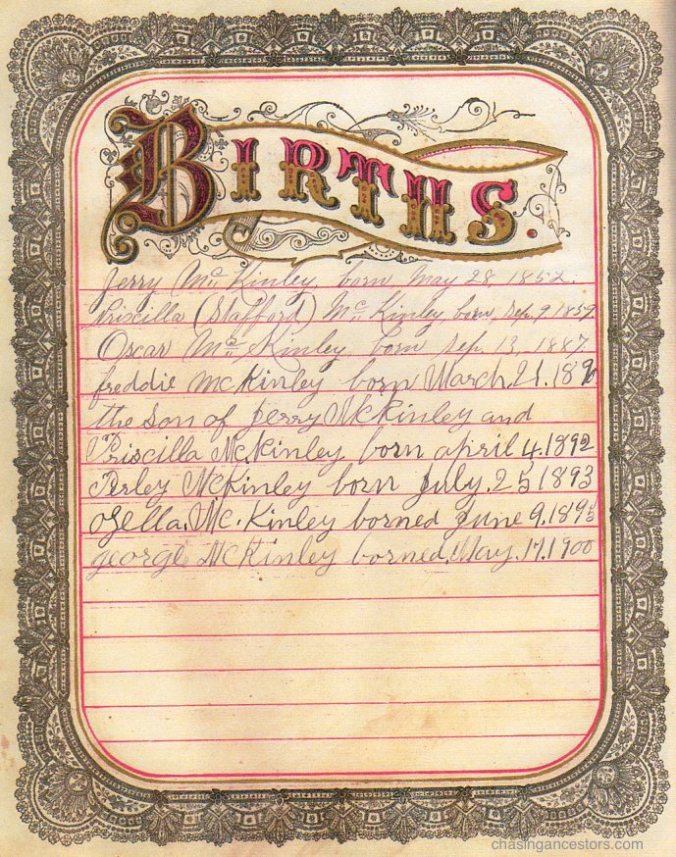 BIRTHS.
Jerry Mc Kinley, born May 28, 1852.
Priscilla (Stafford) Mc Kinley, born, Sep. 9, 1859.
Oscar Mc Kinley born Sep. 13, 1887.
freddie mc Kinley born March. 21. 189
the son of Jerry McKinley and
Priscilla McKinley born april 4. 1892
Perley McKinley born July. 25 1893
Ozella. Mc. Kinley borned June 9. 1895
george McKinley borned. May. 17. 1900
chasingancestors.com